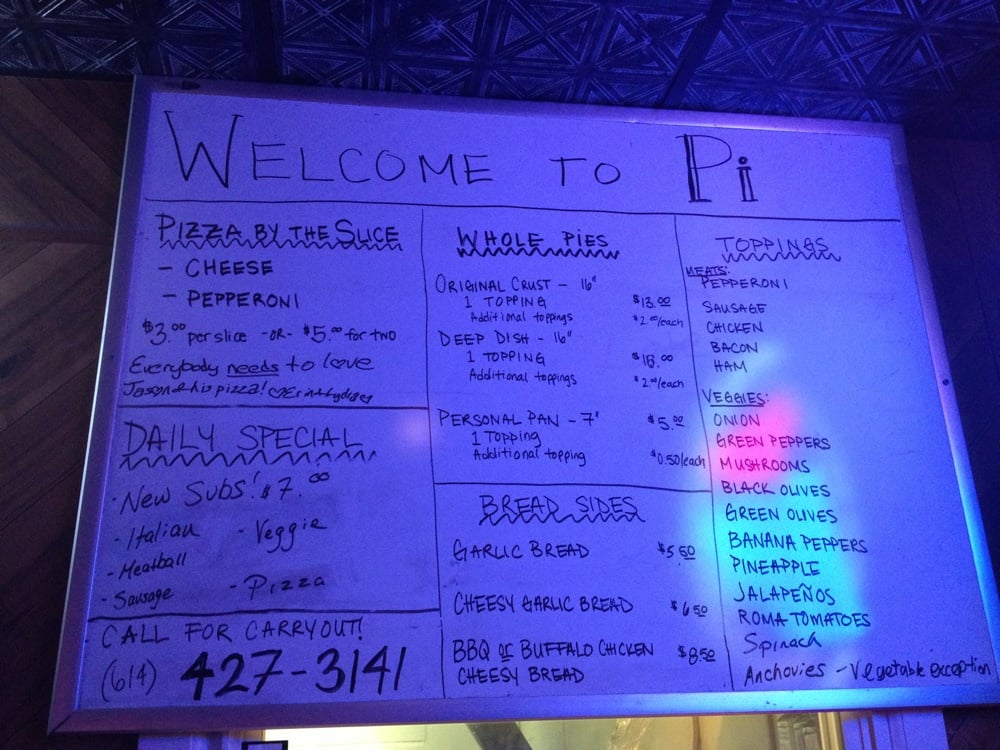 WELCOME TO Pi
PIZZA BY THE SLICE
- CHEESE
- PEPPERONI
$3.00 per slice -OR- $5.00 for two
Everybody needs to love
Jason & his pizza!
DAILY SPECIAL
· New Subs! $7.00
· Italian - Veggie
- Meatball
- Sausage - Pizza
CALL FOR CARRYOUT!
(614) 427-3141
WHOLE PIES
ORIGINAL CRUST - 16"
1 TOPPING $13.00
Additional toppings $2.00/each
DEEP DISH - 16"
1 TOPPING $18.00
Additional toppings $2.00/each
PERSONAL PAN - 7" $5.00
1 Topping
Additional topping $0.50/each
BREAD SIDES
GARLIC BREAD $5.50
CHEESY GARLIC BREAD $6.50
BBQ or BUFFALO CHICKEN $8.50
CHEESY BREAD
TOPPINGS
MEATS:
PEPPERONI
SAUSAGE
CHICKEN
BACON
HAM
VEGGIES:
ONION
GREEN PEPPERS
MUSHROOMS
BLACK OLIVES
GREEN OLIVES
BANANA PEPPERS
PINEAPPLE
JALAPEÑOS
ROMA TOMATOES
Spinach
Anchovies - Vegetable exception